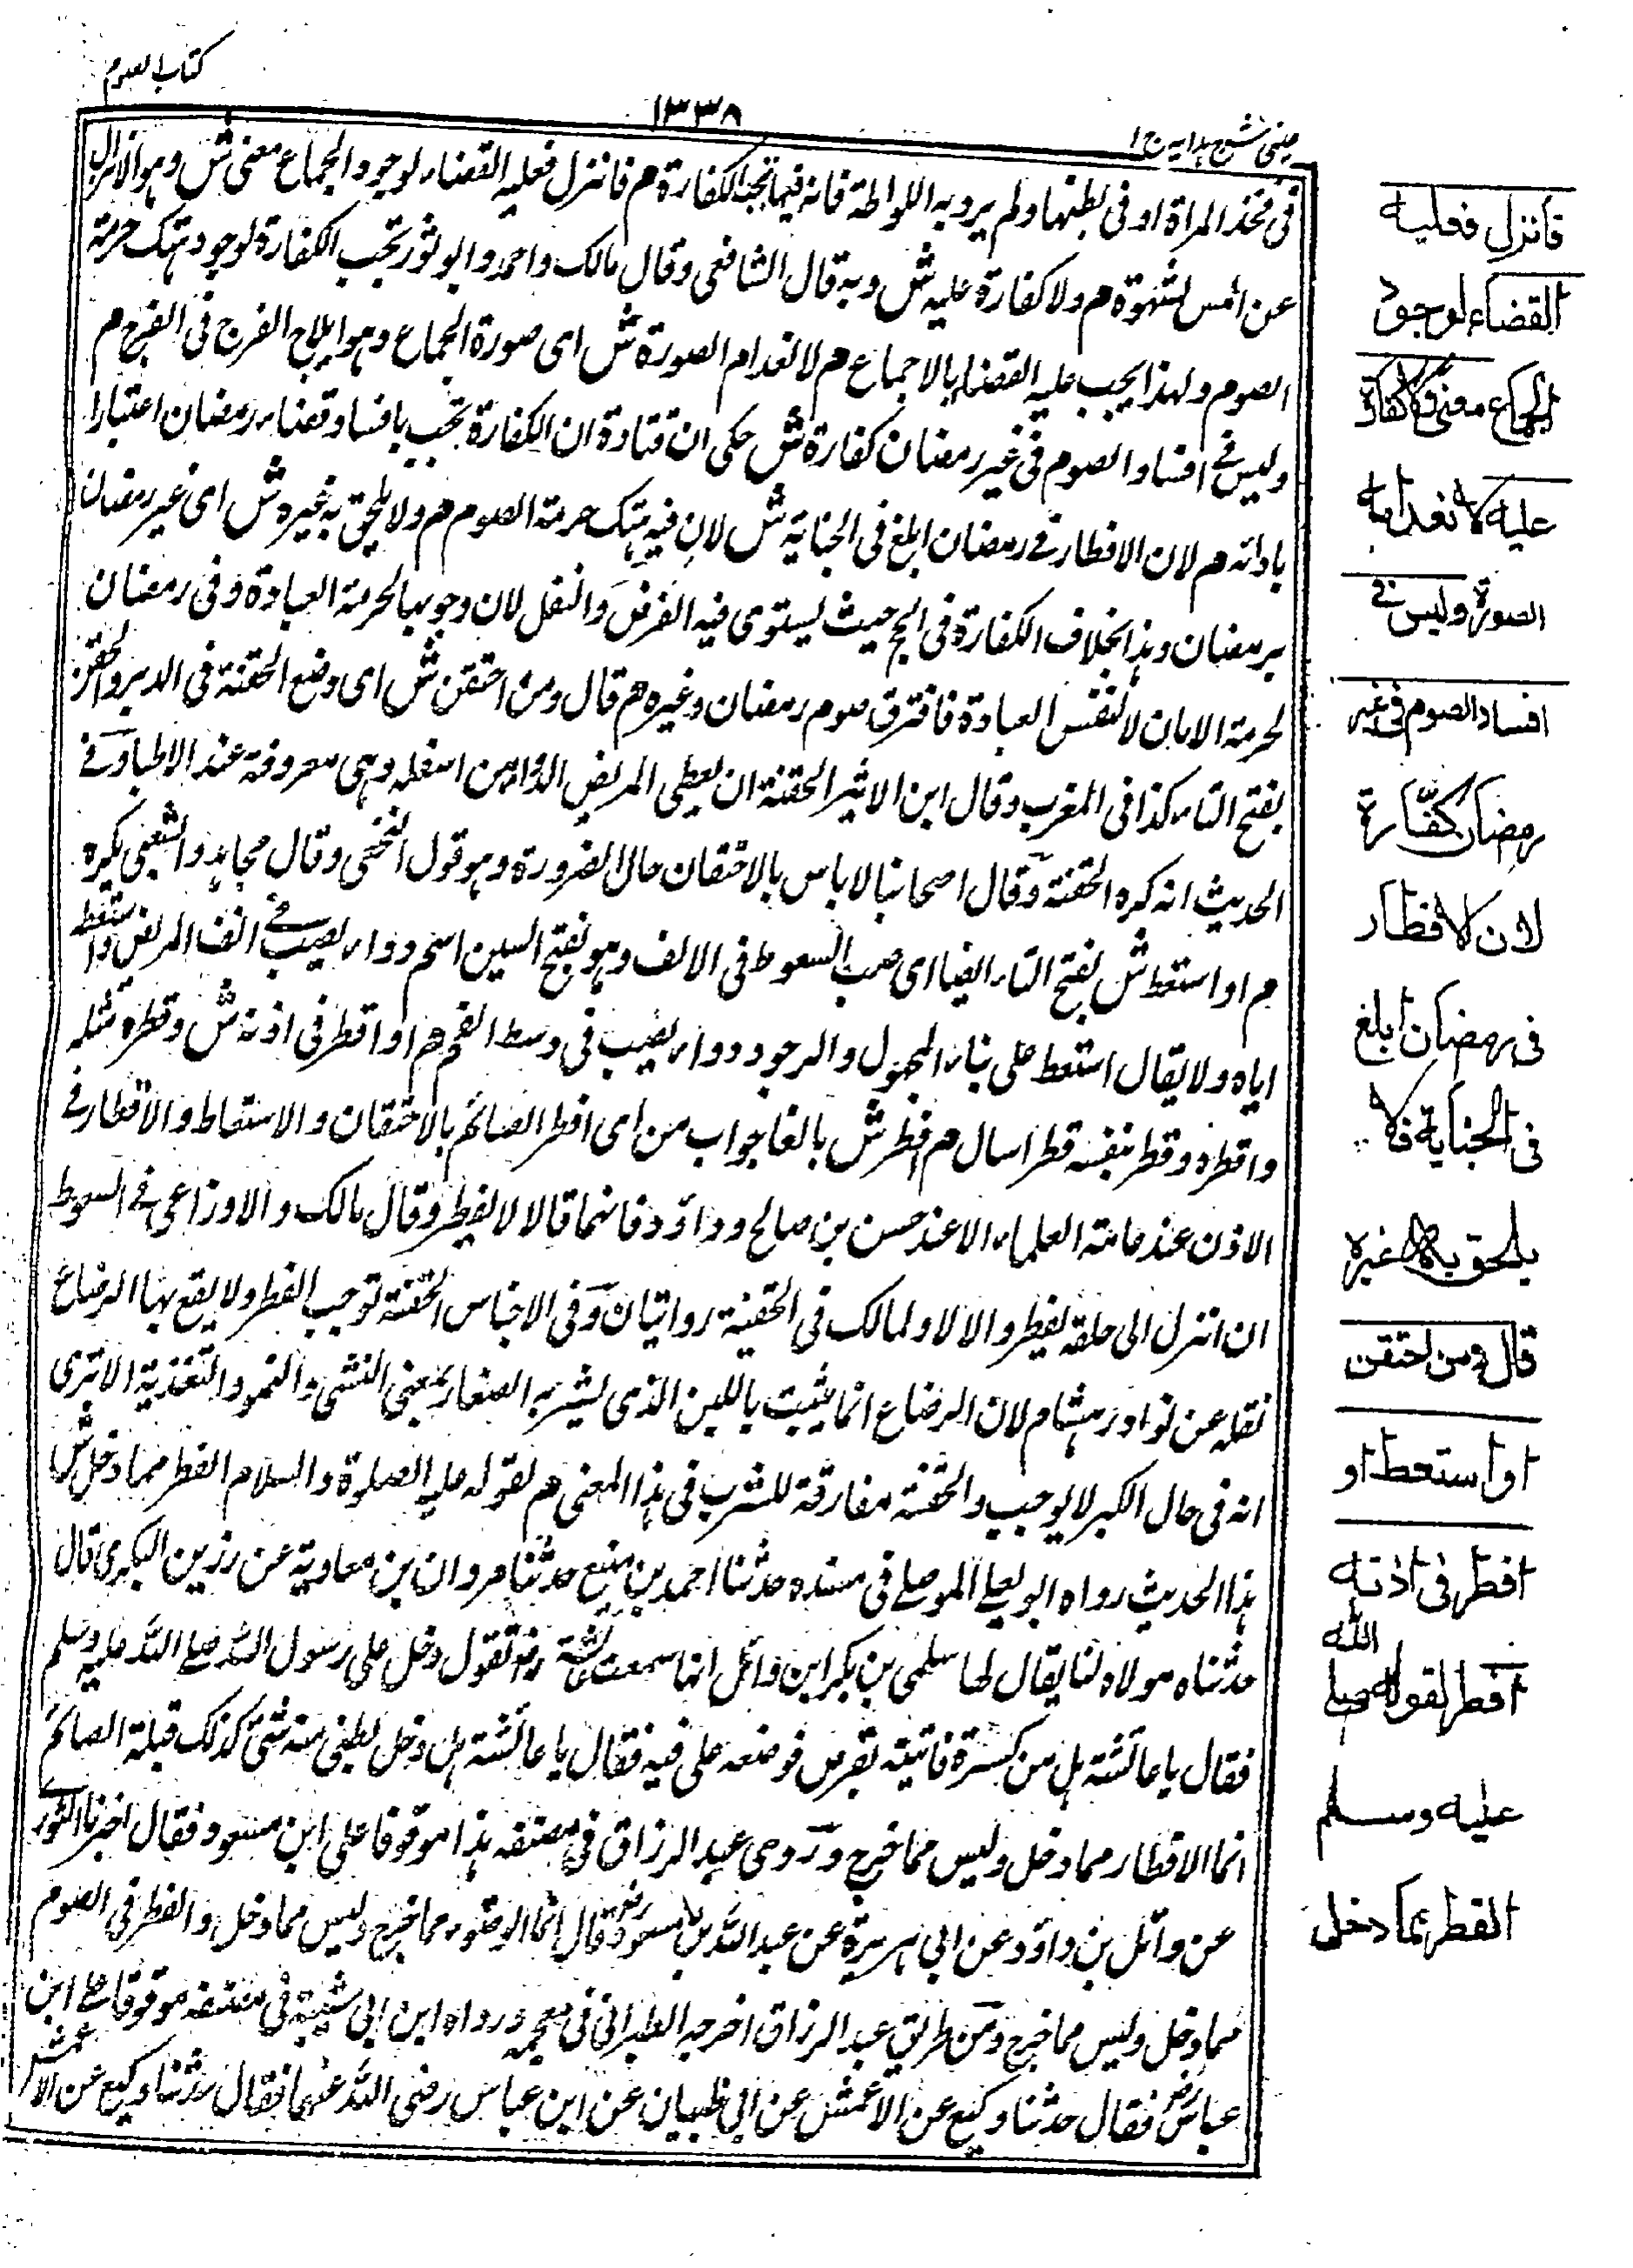 كتاب الصوم
١٣٣٨
عينى شرح هدايه ج ا
فى فخذ المراة او فى بطنها ولم يرد به اللواطة فانه فيها تجب الكفارة م فانزل فعليه القضاء لوجود الجماع معنى ش وهو الانزال
عن امس لشهوة م ولا كفارة عليه ش وبه قال الشافعى وقال مالك واحمد وابو ثور تجب الكفارة لوجود هتك حرمة
الصوم ولهذا يجب عليه القضاء بالاجماع م لانعدام الصورة ش اى صورة الجماع وهو ايلاج الفرج فى الفرج م
وليس فى افساد الصوم فى غير رمضان كفارة ش حكى ان قتادة ان الكفارة تجب بافساد قضاء رمضان اعتبارا
باداته م لان الافطار فى رمضان ابلغ فى الجناية ش لان فيه هتك حرمة الصوم م ولا يلحق به غيره ش اى غير رمضان
برمضان وهذا بخلاف الكفارة فى الحج حيث يستوى فيه الفرض والنفل لان وجوبها لحرمة العبادة وفى رمضان
لحرمة الابان لا لنفس العبادة فافترق صوم رمضان وغيره م قال ومن احتقن ش اى وضع الحقنة فى الدبر
بفتح التاء كذا فى المغرب وقال ابن الاثير الحقنة ان يعطى المريض الدواء من اسفله وهى معروفة عند الاطباء وفى
الحديث انه كره الحقنة وقال اصحابنا لا باس بالاحتقان حال الضرورة وهو قول النخعى وقال مجاهد والشعبى يكره
م او استعط ش بفتح التاء ايضا اى صب السعوط فى الانف وهو بفتح السين اسم دواء يصب فى انف المريض واستعط
اياه ولا يقال استعط على بناء المجهول والوجود دواء يصب فى وسط الفم م او اقطر فى اذنه ش وقطره مثله
واقطره وقطر بنفسه قطرا سال م افطر ش بالفا جواب من اى افطر الصائم بالاحتقان والاستعاط والاقطار فى
الاذن عند عامة العلماء الا عند حسن بن صالح وداؤد فانهما قالا لا يفطر وقال مالك والاوزاعى فى السعوط
ان انزل الى حلقه يفطر والا لا ولمالك فى الحقنة روايتان وفى الاجناس الحقنة توجب الفطر ولا يقع بها الرضاع
نقله عن نوادر هشام لان الرضاع انما يثبت باللبن الذى يشربه الصغار بمعنى النشى والنمو والتغذية الا ترى
انه فى حال الكبر لا يوجب والحقنة مفارقة للشرب فى هذا المعنى م لقوله عليه الصلوة والسلام الفطر مما دخل ش
هذا الحديث رواه ابو يعلى الموصلى فى مسنده حدثنا احمد بن منيع حدثنا مروان بن معاوية عن رزين البكرى قال
حدثناه مولاة لنا يقال لها سلمى بن بكر ابن وائل انها سمعت عائشة رض تقول دخل على رسول الله صلى الله عليه وسلم
فقال يا عائشة هل من كسرة فاتيته بقرص فوضعه على فيه فقال يا عائشة هل دخل بطنى منه شئ كذلك قبلة الصائم
انما الافطار مما دخل وليس مما خرج وروى عبد الرزاق فى مصنفه هذا موقوفا على ابن مسعود فقال اخبرنا الثورى
عن وائل بن داؤد عن ابى هريرة عن عبد الله بن مسعود رض قال انما الوضوء مما خرج وليس مما دخل والفطر فى الصوم
مما دخل وليس مما خرج ومن طريق عبد الرزاق اخرجه الطبرانى فى معجمه ورواه ابن ابى شيبة فى مصنفه موقوفا على ابن
عباس رض فقال حدثنا وكيع عن الاعمش عن ابى ظبيان عن ابن عباس رضى الله عنهما فقال حدثنا وكيع عن الاعمش
فانزل فعليه
القضاء لوجود
الجماع معنى ولا كفارة
عليه لانعدام
الصورة وليس فى
افساد الصوم فى غير
رمضان كفّارة
لان الافطار
فى رمضان ابلغ
فى الجناية فلا
يلحق به غيره
قال ومن احتقن
او استعط او
اقطر فى اذنه
افطر لقوله صلى الله
عليه وسلم
الفطر مما دخل